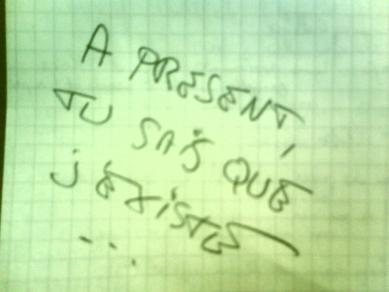 A PRESENT,
TU SAIS QUE
J'ÉXISTE
...